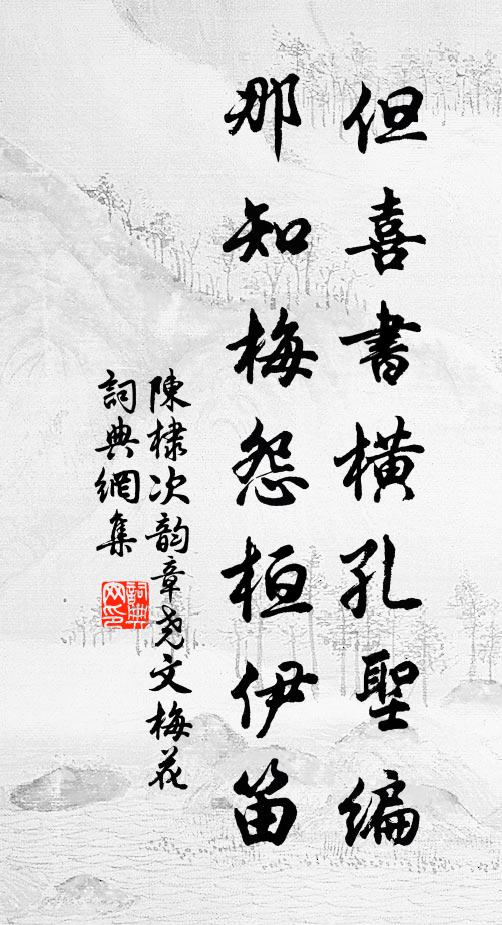 但喜書橫孔聖編
那知梅怨桓伊笛
陳棣次韵章尧文梅花
詞典網集
詞典網印